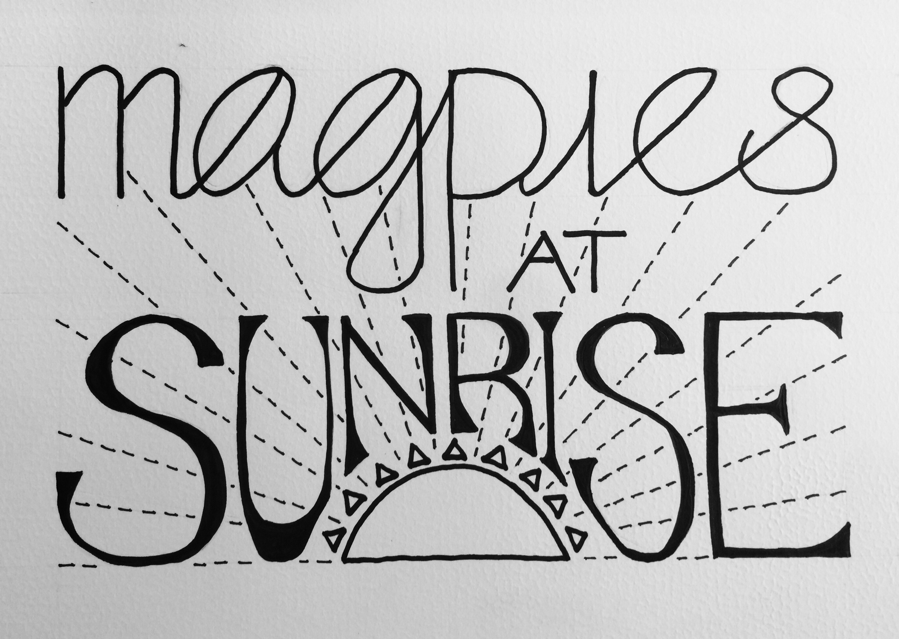 magpies
AT
SUNRISE